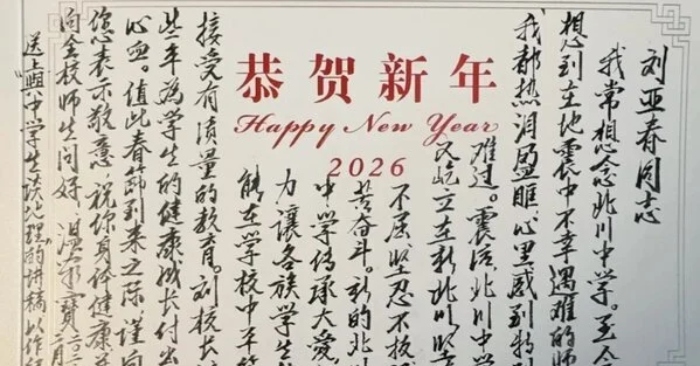 恭贺新年
Happy New Year
2026
刘亚春同志
我常想念北川中学。至今
想到在地震中不幸遇难的师
我都热泪盈眶,心里感到特
难过。震后,北川中学
又屹立在新北川,
不屈、坚忍不拔
苦奋斗。新的北
中学传承大爱,
力让各族学生
能在学校中平等
接受有质量的教育。刘校长
些年为学生的健康成长付出
心血。值此春节到来之际,谨向
您表示敬意,祝你身体健康
向全校师生问好。温家宝 二〇二
二月
送上《与中学生谈地理》的讲稿,以作